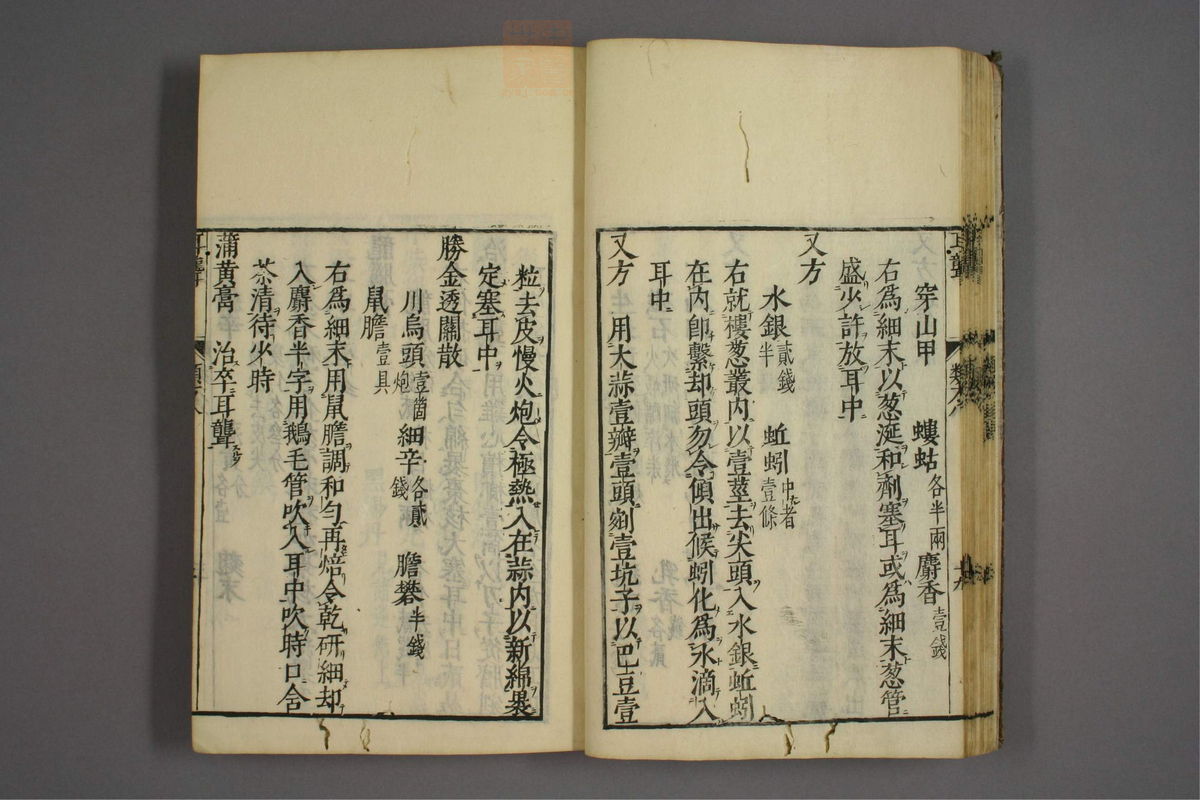 穿山甲 螻蛄各半兩 麝香壹錢
右爲細末以葱涎和劑塞耳或爲細末葱管
盛少許放耳中
又方
水銀貳錢半 蚯蚓中者壹條
右就樓葱叢内以壹莖去尖頭入水銀蚯蚓
在内卽繫却頭勿令傾出候蚓化爲水滴入
耳中
又方 用大蒜壹瓣壹頭剜壹坑子以巴豆壹
粒去皮慢火炮令極熱入在蒜内以新綿裹
定塞耳中
勝金透關散
川烏頭壹箇炮 細辛各貳錢 膽礬半錢
鼠膽壹具
右爲細末用鼠膽調和匀再焙令乾研細却
入麝香半字用鵝毛管吹入耳中吹時口含
茶清待少時
蒲黄膏 治卒耳聾
耳聾